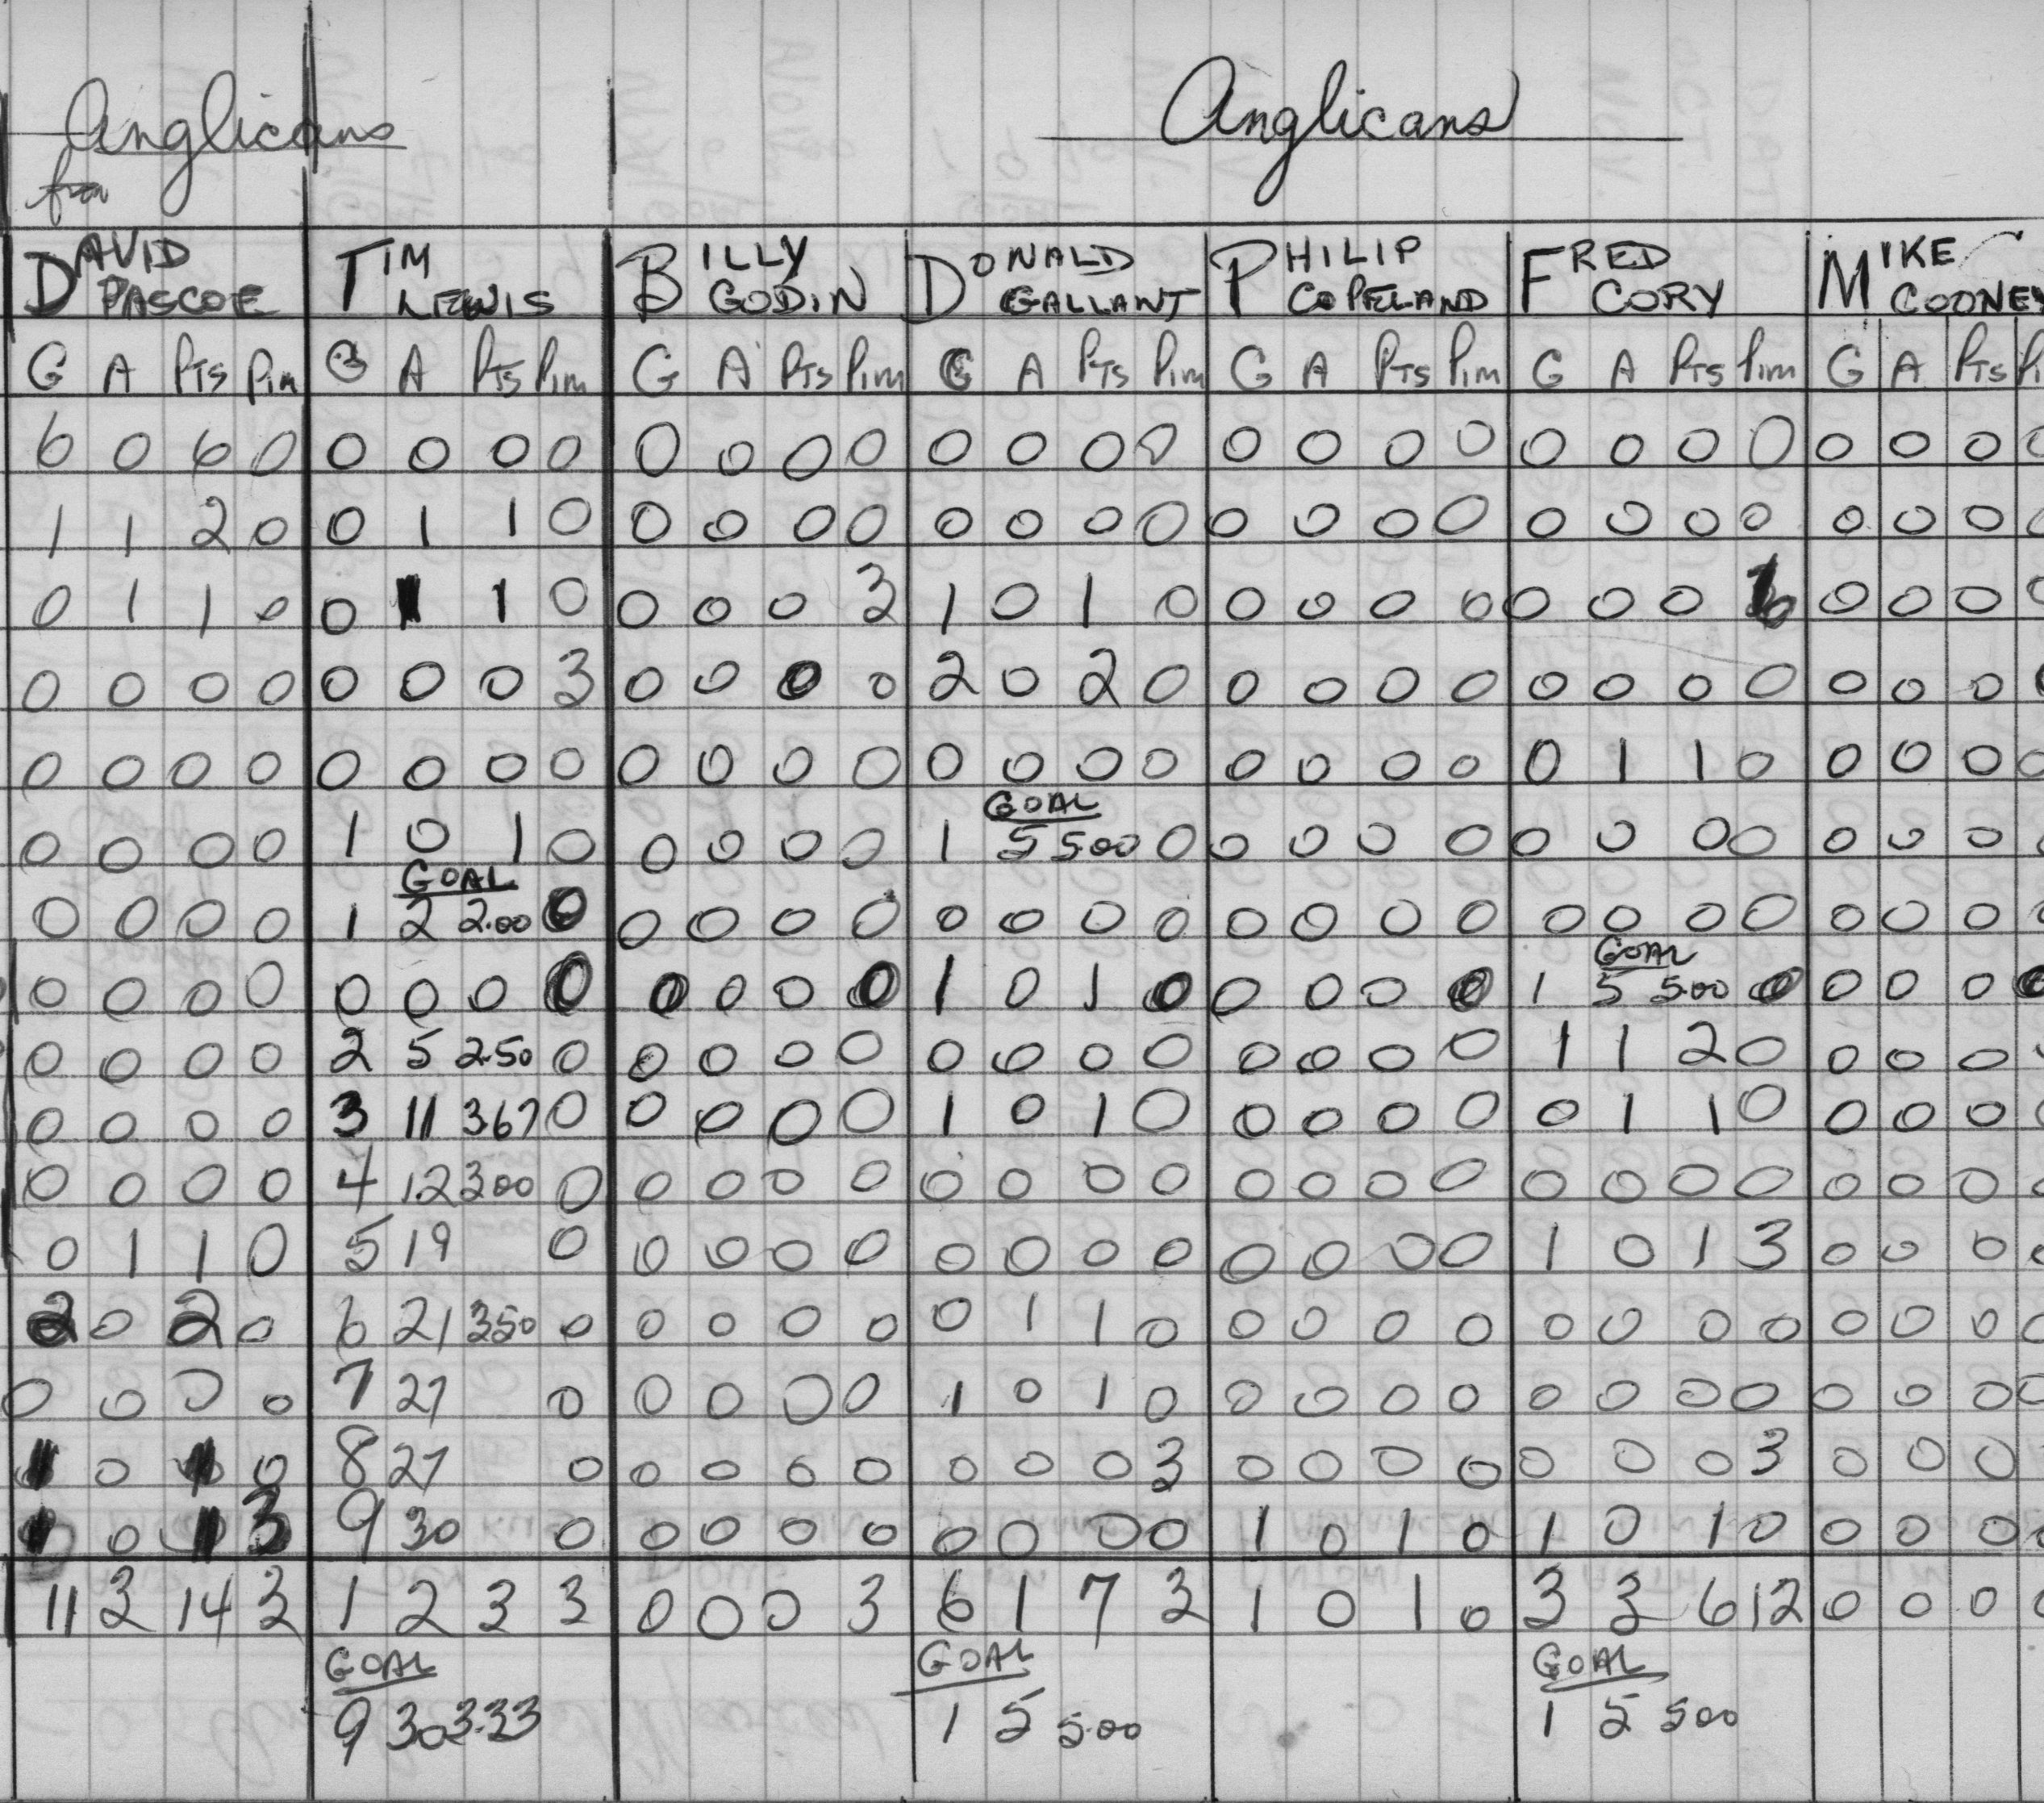 Anglicans Anglicans
from
DAVID TIM BILLY DONALD PHILIP FRED MIKE
PASCOE LEWIS GODIN GALLANT COPELAND CORY COONEY
G A PTS PIM G A PTS PIM G A PTS PIM G A PTS PIM G A PTS PIM G A PTS PIM G A PTS
6 0 6 0 0 0 0 0 0 0 0 0 0 0 0 0 0 0 0 0 0 0 0 0 0 0 0 0
1 1 2 0 0 1 1 0 0 0 0 0 0 0 0 0 0 0 0 0 0 0 0 0 0 0 0 0
0 1 1 0 0 1 1 0 0 0 0 3 1 0 1 0 0 0 0 0 0 0 0 6 0 0 0 0
0 0 0 0 0 0 0 3 0 0 0 0 2 0 2 0 0 0 0 0 0 0 0 0 0 0 0 0
0 0 0 0 0 0 0 0 0 0 0 0 0 0 0 0 0 0 0 0 0 1 1 0 0 0 0 0
GOAL
0 0 0 0 1 0 1 0 0 0 0 0 1 5 5.00 0 0 0 0 0 0 0 0 0 0 0 0 0
GOAL
0 0 0 0 1 2 2.00 0 0 0 0 0 0 0 0 0 0 0 0 0 0 0 0 0 0 0 0 0
GOAL
0 0 0 0 0 0 0 0 0 0 0 0 1 0 1 0 0 0 0 0 1 5 5.00 0 0 0 0 0
0 0 0 0 2 5 2.50 0 0 0 0 0 0 0 0 0 0 0 0 0 1 1 2 0 0 0 0
0 0 0 0 3 11 367 0 0 0 0 0 1 0 1 0 0 0 0 0 0 1 1 0 0 0 0 0
0 0 0 0 4 12 300 0 0 0 0 0 0 0 0 0 0 0 0 0 0 0 0 0 0 0 0 0
0 1 1 0 5 19 0 0 0 0 0 0 0 0 0 0 0 0 0 1 0 1 3 0 0 0 0
2 0 2 0 6 21 350 0 0 0 0 0 0 1 1 0 0 0 0 0 0 0 0 0 0 0 0 0
0 0 0 0 7 27 0 0 0 0 0 1 0 1 0 0 0 0 0 0 0 0 0 0 0 0 0
1 0 1 0 8 27 0 0 0 0 0 0 0 0 3 0 0 0 0 0 0 0 3 0 0 0
1 0 1 3 9 30 0 0 0 0 0 0 0 0 0 1 0 1 0 1 0 1 0 0 0 0 0
11 3 14 3 1 2 3 3 0 0 0 3 6 1 7 3 1 0 1 0 3 3 6 12 0 0 0 0
GOAL GOAL GOAL
9 30 3.33 1 5 5.00 1 5 500